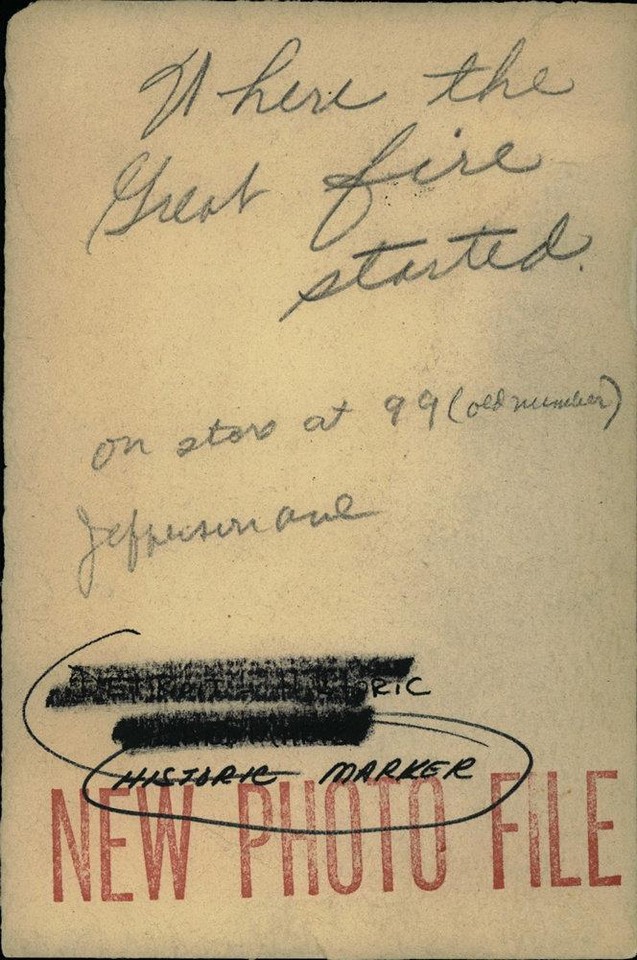 Where the
Great fire
started.
on store at 99 (old number)
Jefferson ave
DETROIT - HISTORIC
HISTORIC MARKER
NEW PHOTO FILE